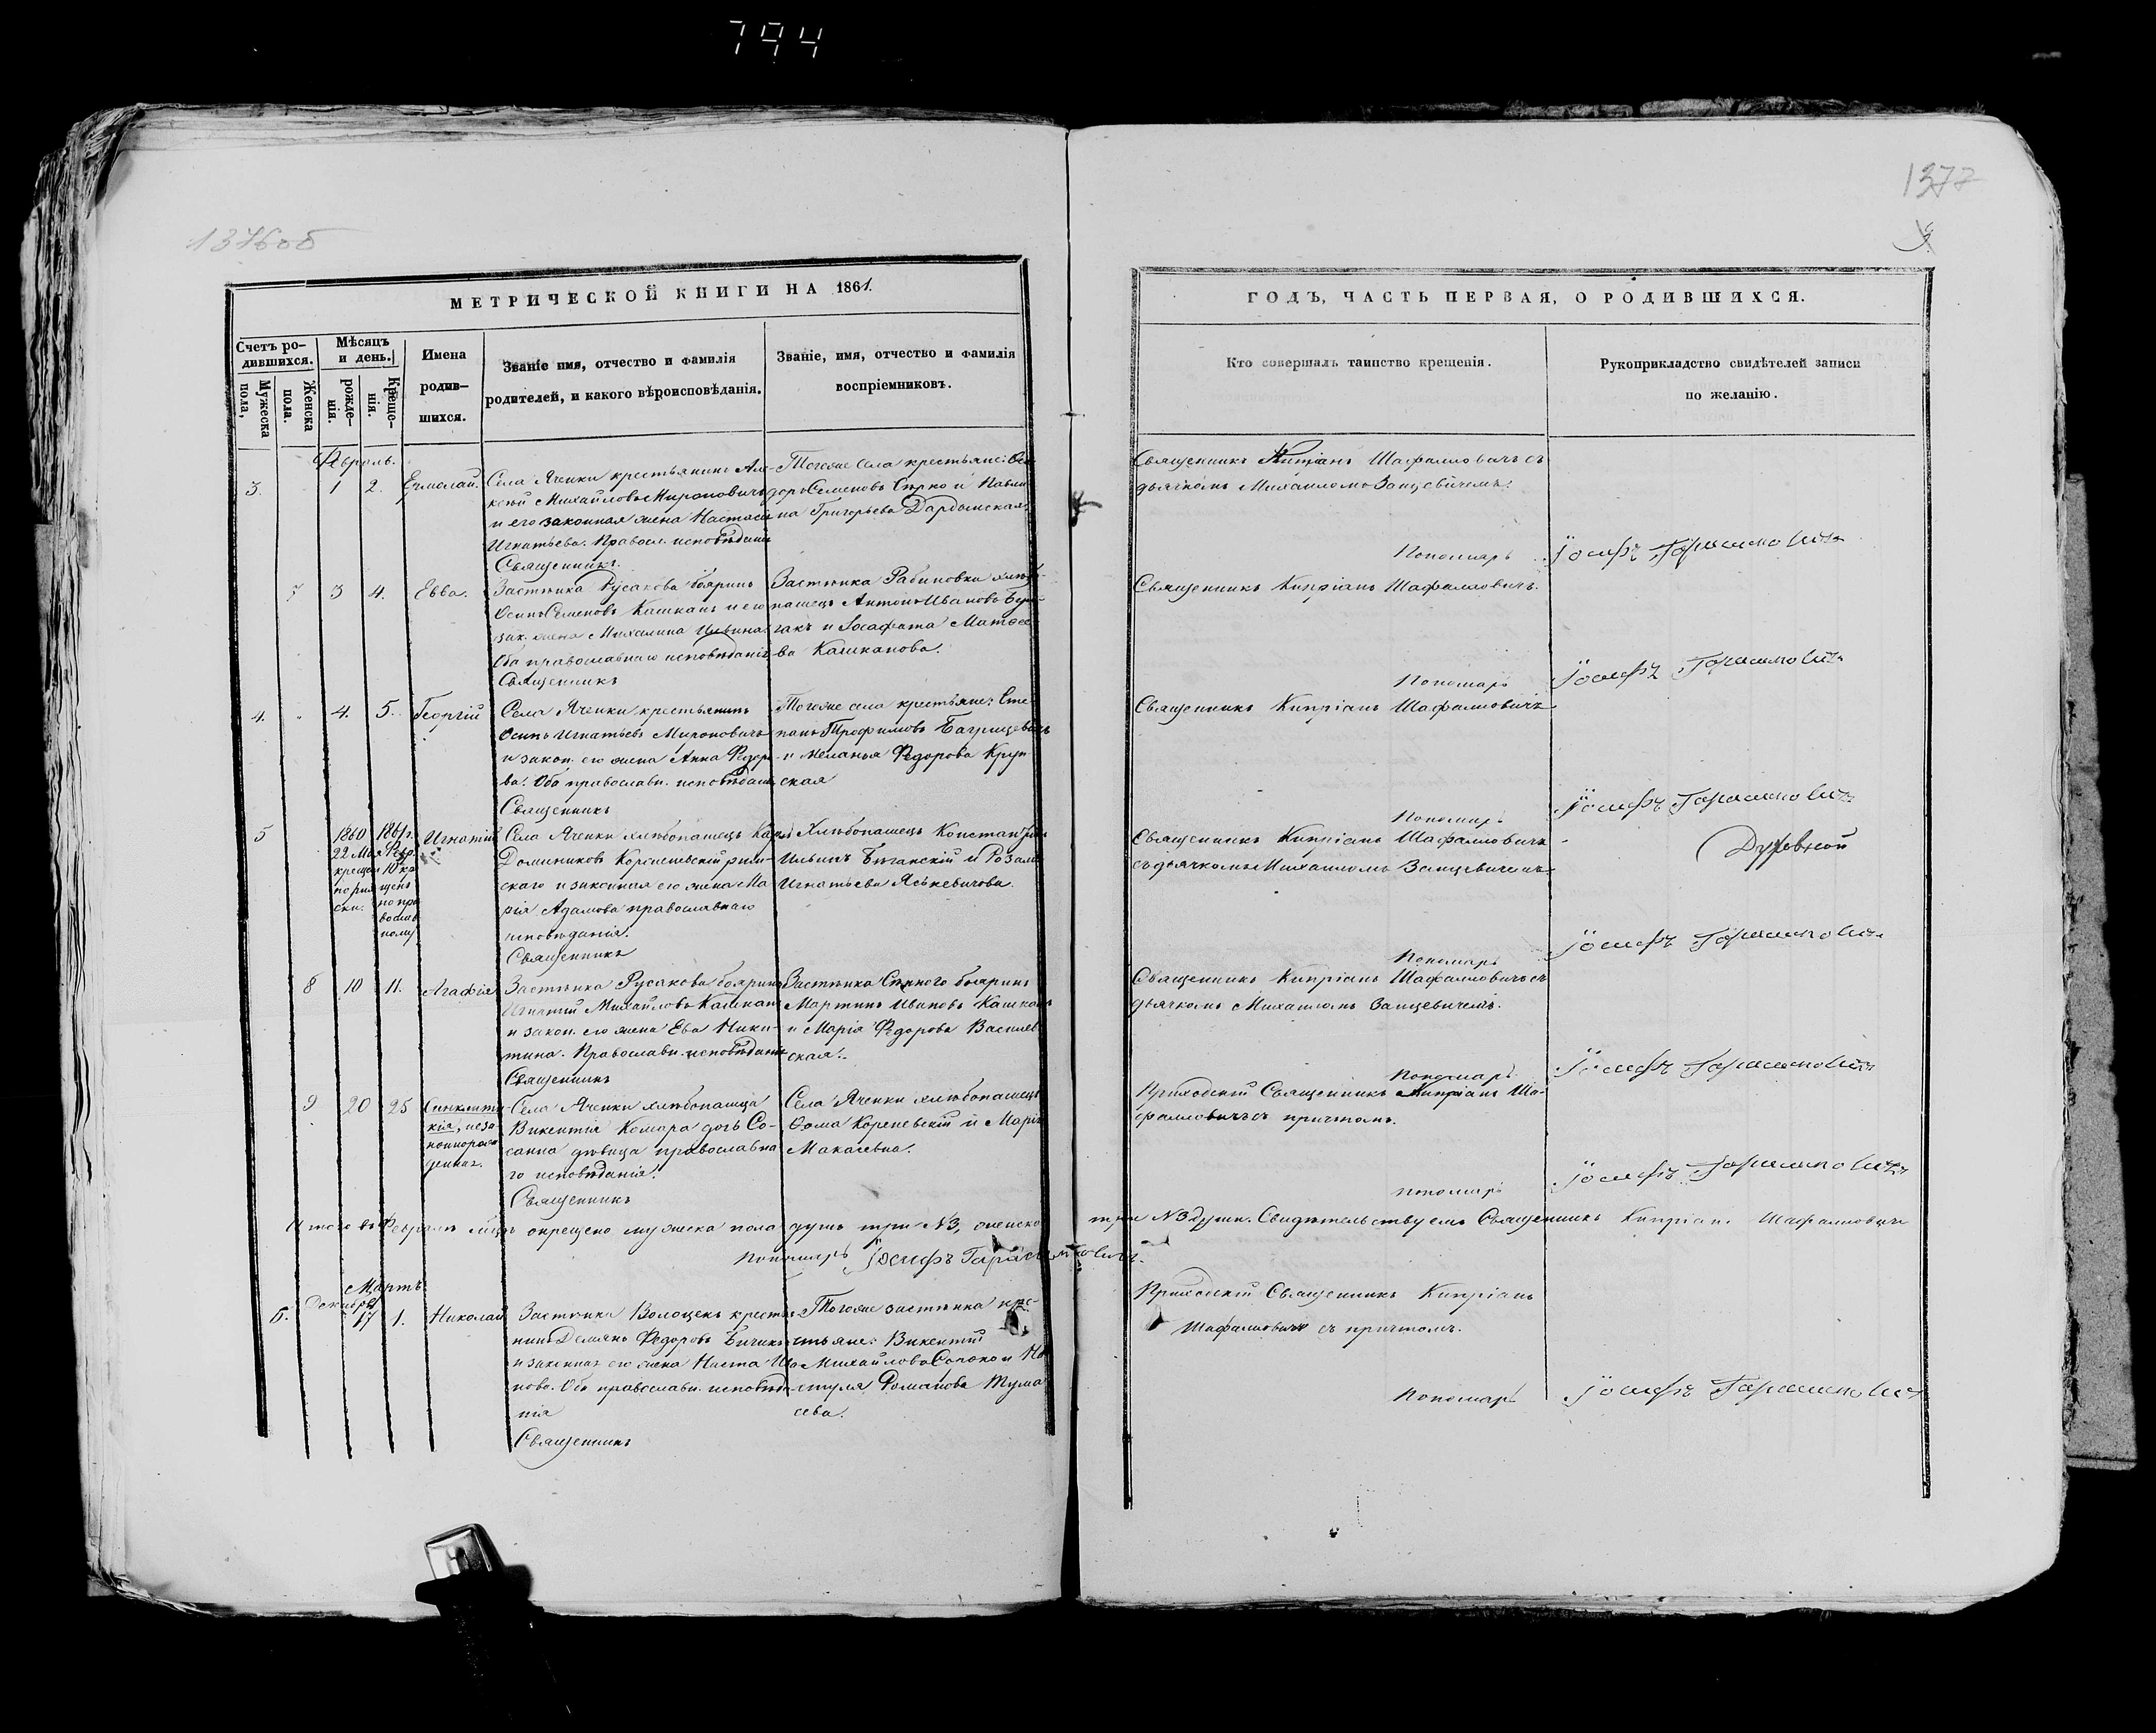 794
1376об
1377
МЕТРИЧЕСКОЙ КНИГИ НА 1861.
Счетъ ро-
дившихся.
Мужеска
пола,
Женска
пола.
Мѣсяцъ
и день.
рожде-
нія.
Креще-
нія.
Имена
родив-
шихся.
Званіе имя, отчество и фамилія
родителей, и какого вѣроисповѣданія.
Званіе, имя, отчество и фамилія
воспріемниковъ.
ГОДЪ, ЧАСТЬ ПЕРВАЯ, О РОДИВШИХСЯ.
Кто совершалъ таинство крещенія.
Рукоприкладство свидѣтелей записи
по желанію.
Февраль.
3. 1 2. Ермолай.
Села Яченки крестьянинъ Але-
ксѣй Михайловъ Мироновичъ
и его законная жена Настася
Игнатьева. Правосл. исповѣданія
Священникъ
Тогоже села крестьяне: Ѳео-
доръ Семеновъ Сѣрко и Павли
на Григорьева Дардынская.
Священникъ Кипріанъ Шафаловичъ съ
дьячкомъ Михаиломъ Занцевичемъ.
Пономарь Іосифъ Гарашковичъ
7 3 4. Евва.
Застѣнка Русакова бояринъ
Осипъ Семеновъ Кашканъ и его
зак. жена Михалина Ильина.
Оба православнаго исповѣданія
Священникъ
Застѣнка Рабиновки хлѣбо-
пашецъ Антонъ Ивановъ
и Іосафата Матѳее
ва Кашканова.
Священникъ Кипріанъ Шафаловичъ.
Пономарь Іосифъ Гарашковичъ
4. 4. 5. Георгій
Села Яченки крестьянинъ
Осипъ Игнатьевъ Мироновичъ
и закон. его жена Анна Ѳедоро
ва. Оба православн. исповѣданія
Священникъ
Тогоже села крестьяне: Сте
панъ Трофимовъ Багрицевичъ
и Меланья Ѳедорова Круп
ская
Священникъ Кипріанъ Шафаловичъ
Пономарь Іосифъ Гарашковичъ
5 1860 22 Мая крещен по рим ски. 1861 г. Февр. 10 кре щенъ по пра вослав ному Игнатій
Села Яченки хлѣбопашецъ Карлъ
Доминиковъ Кореневскій рим-
скаго и законная его жена Ма
рія Адамова православнаго
исповѣданія.
Священникъ
Хлѣбопашецъ Константинъ
Ильинъ Бѣганскій и Розалія
Игнатьева Яськевичова.
Священникъ Кипріанъ Шафаловичъ
съ дьячкомъ Михаиломъ Занцевичемъ
Пономарь Іосифъ Гарашковичъ
8 10 11. Агафія
Застѣнка Русакова бояринъ
Игнатій Михайловъ Кашкан
и закон. его жена Ева Ники-
тина. Православн. исповѣданія
Священникъ
Застѣнка Сѣнного бояринъ
Мартинъ Ивановъ Кашканъ
и Марія Ѳедорова Василев
ская.
Священникъ Кипріанъ Шафаловичъ съ
дьячкомъ Михаиломъ Занцевичемъ.
Пономарь Іосифъ Гарашковичъ
9 20 25 Синклити
кія, неза-
коннорож
денная.
Села Яченки хлѣбопашца
Викентія Комара дочь Со-
санна дѣвица православна
го исповѣданія.
Священникъ
Села Яченки хлѣбопашецъ
Ѳома Кореневскій и Марія
Макаевна.
Приходскій Священникъ Кипріанъ Ша-
фаловичъ съ причтомъ.
Пономарь Іосифъ Гарашковичъ
Итого въ Февралѣ мцѣ окрещено мужеска пола душъ три №3, женска три №3 души. Свидѣтельствуемъ Священникъ Кипріанъ Шафаловичъ
Пономарь Іосифъ Гарашковичъ.
Мартъ
6. Декабря 17 1. Николай
Застѣнка Волощекъ крестья
нинъ Демянъ Ѳедоровъ Бичикъ
и законная его жена Наста Ива
нова. Оба православн. исповѣда
нія
Священникъ
Тогоже застѣнка кре-
стьяне: Викентій
Михайловъ Сопоко и На
стуля Романова Тума
сева.
Приходскій Священникъ Кипріанъ
Шафаловичъ съ причтомъ.
Пономарь Іосифъ Гарашковичъ